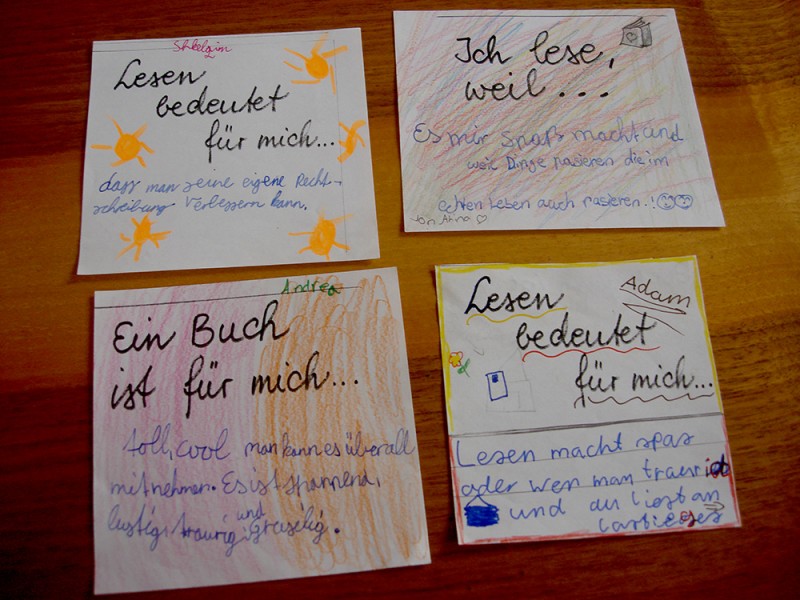 Shkelzim
Lesen
bedeutet
für mich...
dass man seine eigene Recht-
schreibung Verbessern kann.
Ich lese,
weil...
Es mir spaß macht und
weil Dinge pasieren die im
echten Leben auch pasieren.!
von Anna
Andrea
Ein Buch
ist für mich...
toll, cool man kann es überall
mitnehmen. Es ist spannend,
lustig, traurig, und Gruselig.
Adam
Lesen
bedeutet
für mich...
Lesen macht spas
oder wen man traurist
und du liest an